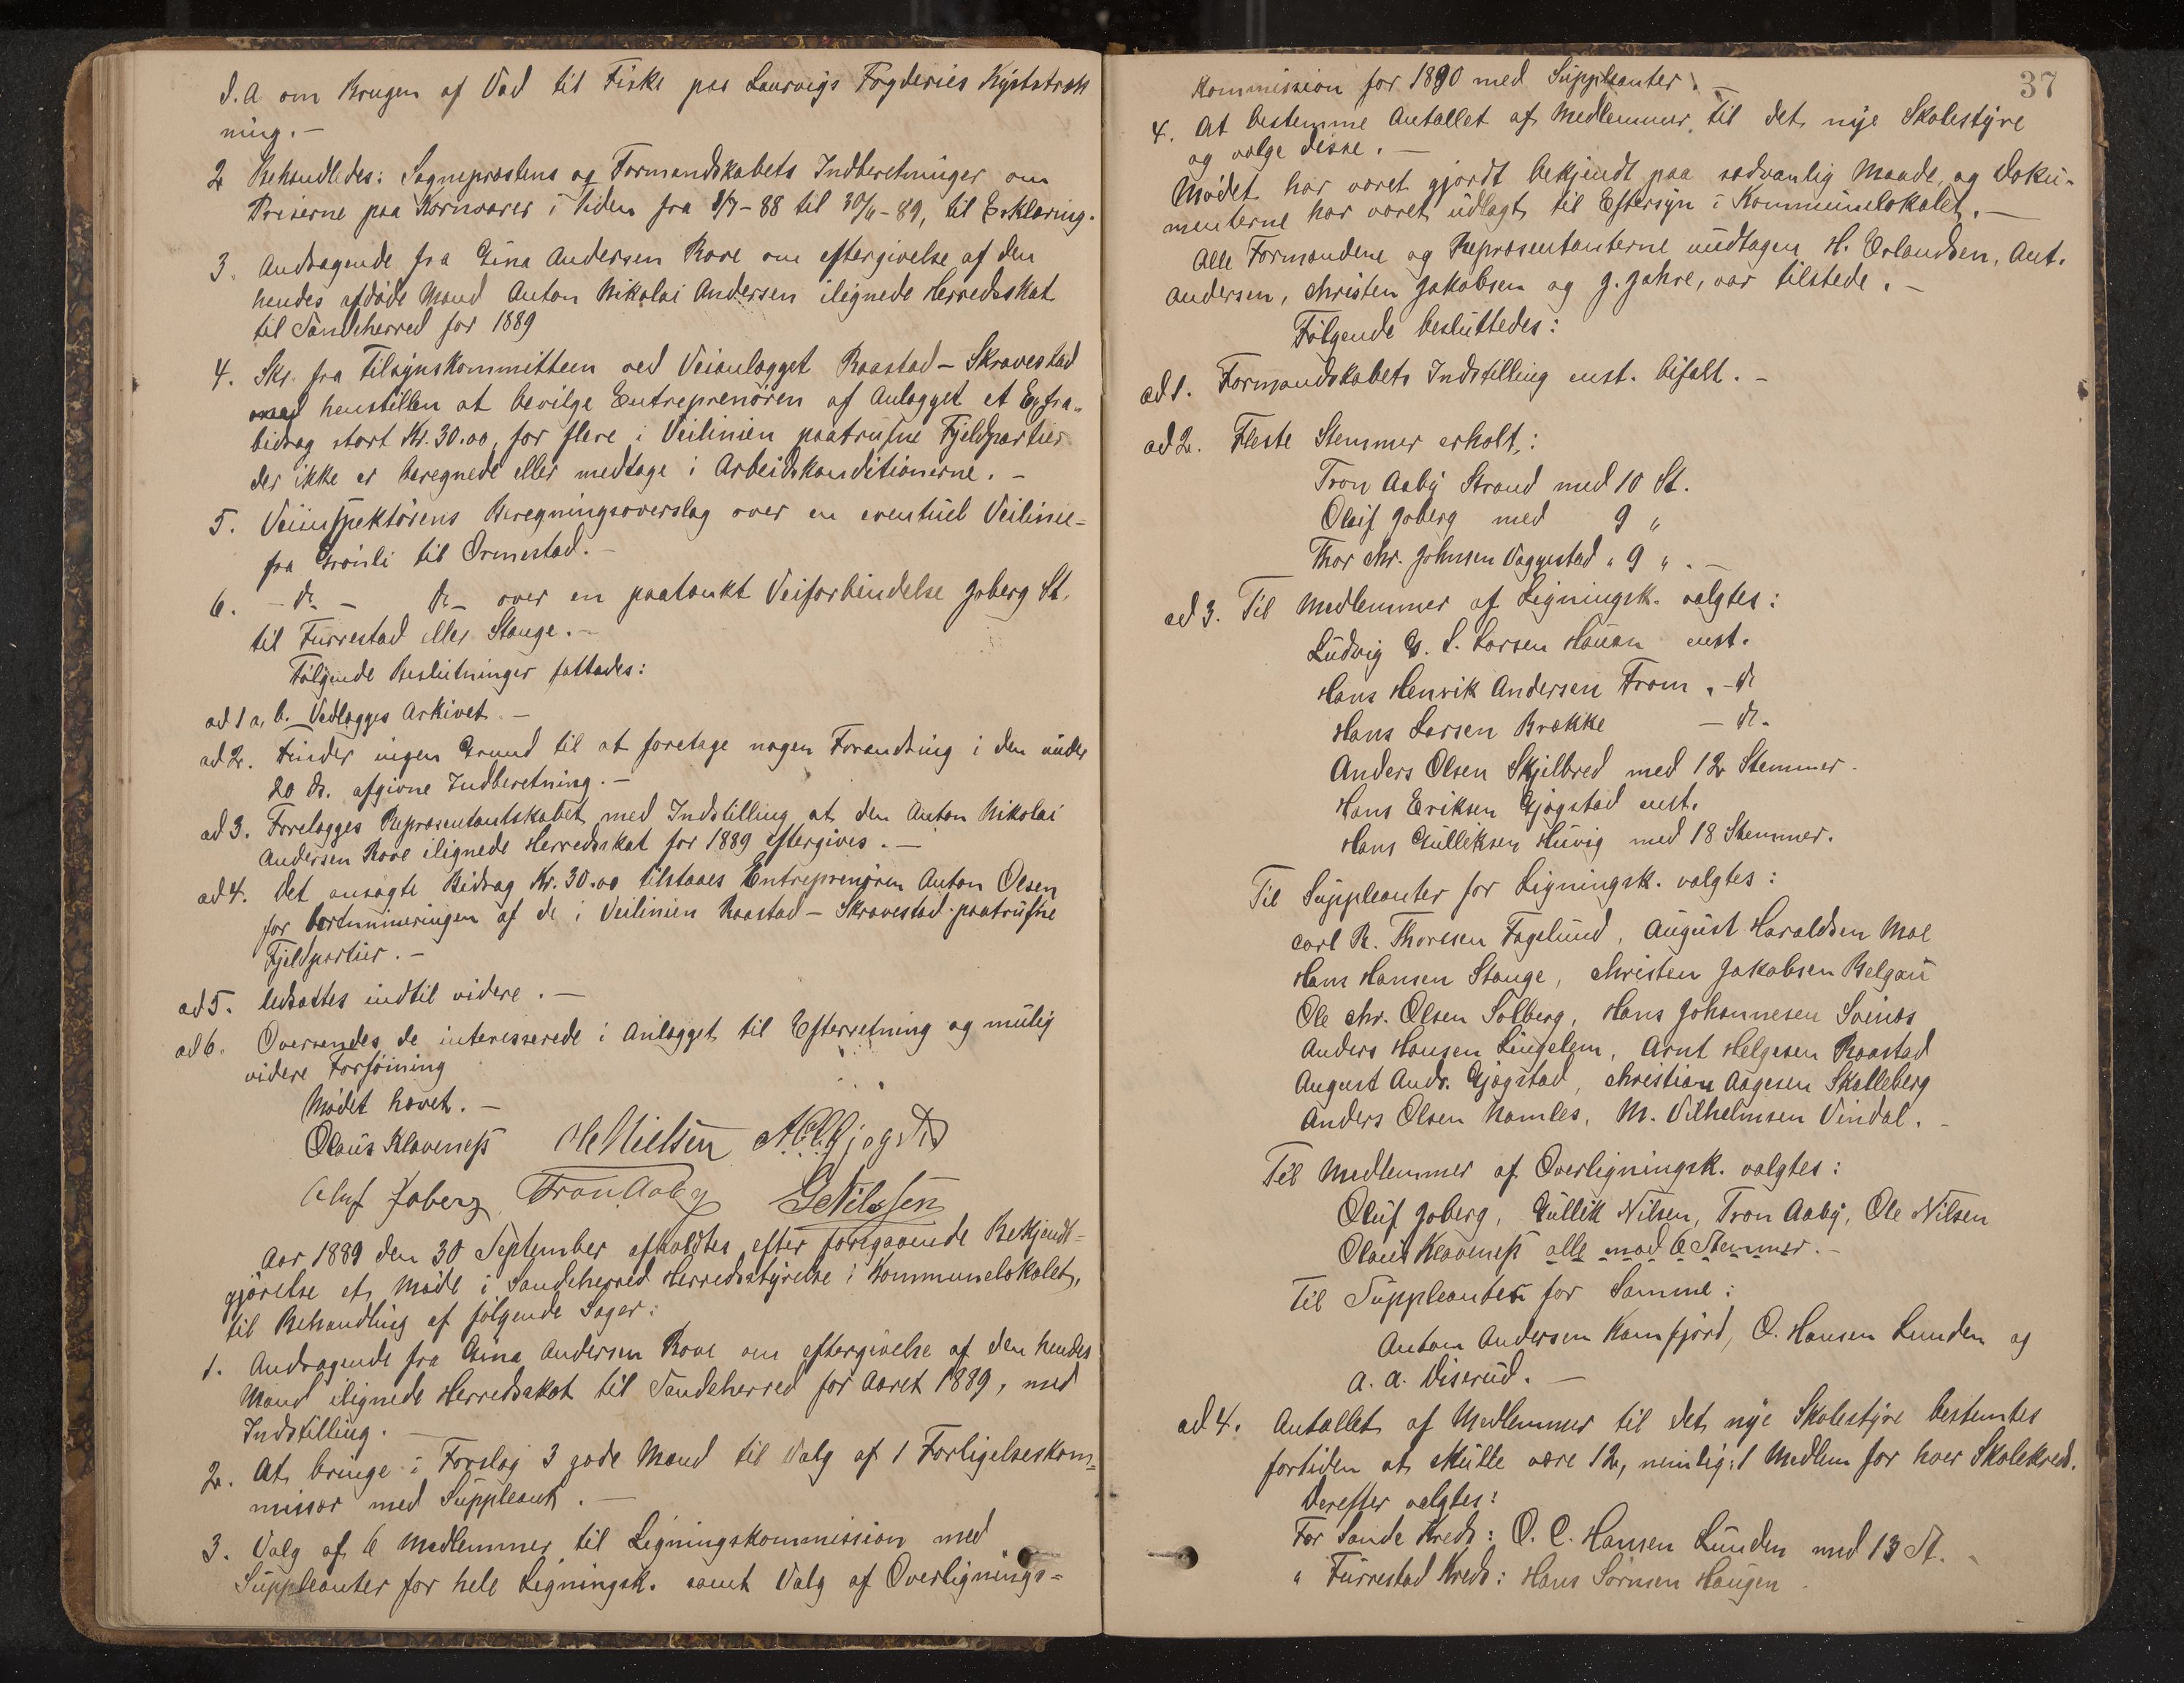 d.A om Brugen af Vad til Fiske paa Laurvigs Fogderies Kyststræk
ning. –
2 Behandledes: Sogneprestens og Formandskabets Indberetninger om
Priserne paa Kornvarer i Tiden fra 1/7-88 til 30/6-89, til Erklæring.
3. Andragende fra Gina Andersen Rove om eftergivelse af den
hendes afdøde Mand Anton Nikolai Andersen ilignede Herredsskat
til Sandeherred for 1889
4. Skr. fra Tilsynskommitteen ved Veianlægget Raastad – Skravestad
med henstillen at bevilge Entreprenøren af Anlægget et Extra-
bidrag stort Kr. 30.00, for flere i Veilinien paatrufne Fjeldpartier
der ikke er beregnede eller medtage i Arbeidskonditionerne. –
5. Veiinspektørens Beregningsoverslag over en eventuel Veilinie-
fra Grønli til Ormestad. –
6. – do – do – over en paatænkt Veiforbindelse Joberg St.
til Furrestad eller Stange. –
Følgende Beslutninger fattedes:
ad 1 a, b. Vedlægges Arkivet. –
ad 2. Finder ingen Grund til at foretage nogen Forandring i den under
20 ds. afgivne Indberetning. –
ad 3. Forelægges Repræsentantskabet med Indstilling at den Anton Nikolai
Andersen Rove ilignede Herredsskat for 1889 eftergives. –
ad 4. Det ansøgte Bidrag Kr. 30.00 tilstaaes Entreprenøren Anton Olsen
for bortmineringen af de i Veilinien Raastad – Skravestad paatrufne
Fjeldpartier. –
ad 5. Udsattes indtil videre. –
ad 6. Oversendes de interesserede i Anlægget til Efterretning og mulig
videre Forføining
Mødet hævet. –
Olaus Klaveness Ole Nielsen
Oluf Joberg Tron Aaby G Nilssen
Aar 1889 den 30 September afholdtes efter foregaaende Bekjendt-
gjørelse et Møde i Sandeherred Herredsstyrelse i Kommunelokalet,
til Behandling af følgende Sager:
1. Andragende fra Gina Andersen Rove om eftergivelse af den hendes
Mand ilignede Herredsskat til Sandeherred for Aaret 1889, med
Indstilling. –
2. At bringe i Forslag 3 gode Mænd til Valg af 1 Forligelseskom-
missær med Suppleant. –
3. Valg af 6 Medlemmer til Ligningskommission med
Suppleanter for hele Ligningsk. samt Valg af Overlignings-
37
Kommission for 1890 med Suppleanter. –
4. At bestemme Antallet af Medlemmer til det nye Skolestyre
og vælge disse. –
Mødet har været gjordt bekjendt paa sædvanlig Maade, og Doku-
menterne har været udlagt til Eftersyn i Kommunelokalet. –
Alle Formændene og Repræsentanterne undtagen H. Erlandsen, Ant.
Andersen, Christen Jakobsen og J. Jahre, var tilstede. –
Følgende besluttedes:
ad 1. Formandskabets Indstilling enst. bifalt. –
ad 2. Fleste Stemmer erholt:
Tron Aaby Strand med 10 St.
Oluf Joberg med 9 "
Thor Chr. Johnsen Vaggestad " 9 " . –
ad 3. Til Medlemmer af Ligningsk. valgtes:
Ludvig G. S. Larsen Hauan enst.
Hans Henrik Andersen From . – do
Hans Larsen Brække – do.
Anders Olsen Skjelbred med 12 Stemmer.
Hans Eriksen Gjøgstad enst.
Hans Gulliksen Huvig med 18 Stemmer.
Til Suppleanter for Ligningsk. valgtes:
Carl R. Thoresen Fagelund, August Haraldsen Moe
Hans Hansen Stange, Christen Jakobsen Helgau
Ole Chr. Olsen Solberg, Hans Johannesen Svinøs
Anders Hansen Lingelem, Arnt Helgesen Raastad
August Andr. Gjøgstad, Christian Aagesen Skalleberg
Anders Olsen Namles, M. Vilhelmsen Vindal. –
Til Medlemmer af Overligningsk. valgtes:
Oluf Joberg, Gullik Nilsen, Tron Aaby, Ole Nilsen
Olaus Klaveness alle med 6 Stemmer. –
Til Suppleanter for Samme:
Anton Andersen Kamfjord, O. Hansen Lunden og
A. A. Viserud. –
ad 4. Antallet af Medlemmer til det nye Skolestyre bestemtes
fortiden at skulle være 12, nemlig: 1 Medlem for hver Skolekreds.
Derefter valgtes:
For Sande Kreds: O. C. Hansen Lunden med 13 St.
" Furrestad Kreds: Hans Sørensen Haugen.